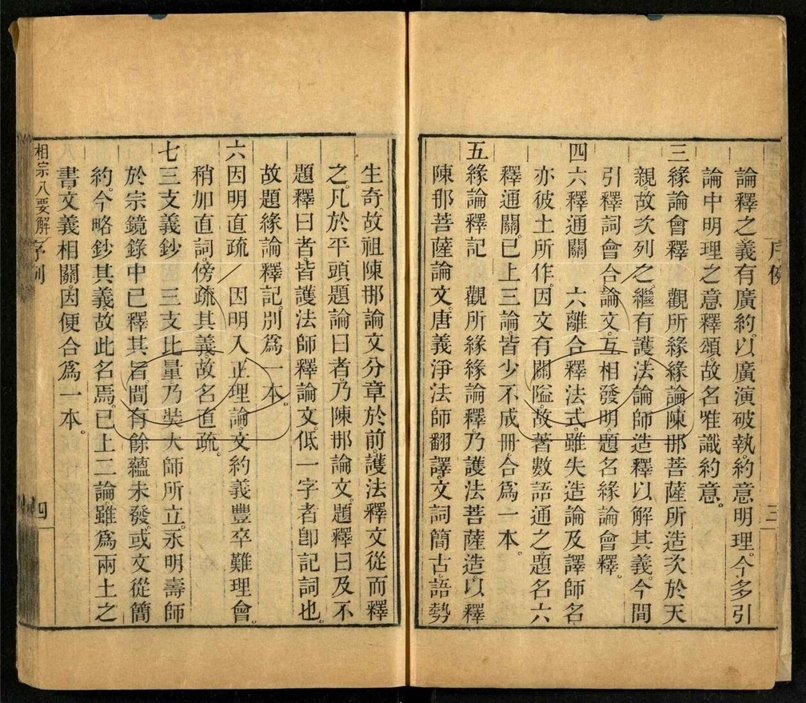 序例
三
論釋之義有廣約。以廣演破執。約意明理。今多引
論中明理之意釋頌。故名唯識約意。
三緣論會釋　觀所緣緣論陳那菩薩所造。次於天
親。故次列之。繼有護法論師造釋以解其義。今間
引釋詞會合論文。互相發明。題名緣論會釋。
四六釋通關　六離合釋法式雖失造論及譯師名。
亦彼土所作。因文有關隘。故著數語通之。題名六
釋通關。已上三論皆少不成冊。合爲一本。
五緣論釋記　觀所緣緣論釋乃護法菩薩造。以釋
陳那菩薩論文。唐義淨法師翻譯。文詞簡古。語勢
生奇。故祖陳那論文分章於前。護法釋文從而釋
之。凡於平頭題論曰者。乃陳那論文。題釋曰及不
題釋曰者。皆護法師釋論文。低一字者卽記詞也。
故題緣論釋記。別爲一本。
六因明直疏　因明入正理論文約義豐。卒難理會。
稍加直詞傍疏其義。故名直疏。
七三支義鈔　三支比量乃奘大師所立。永明壽師
於宗鏡錄中已釋其旨。間有餘蘊未發。或文從簡
約。今略鈔其義。故此名焉。已上二論雖爲兩土之
書。文義相關。因便合爲一本。
相宗八要解　序例
四